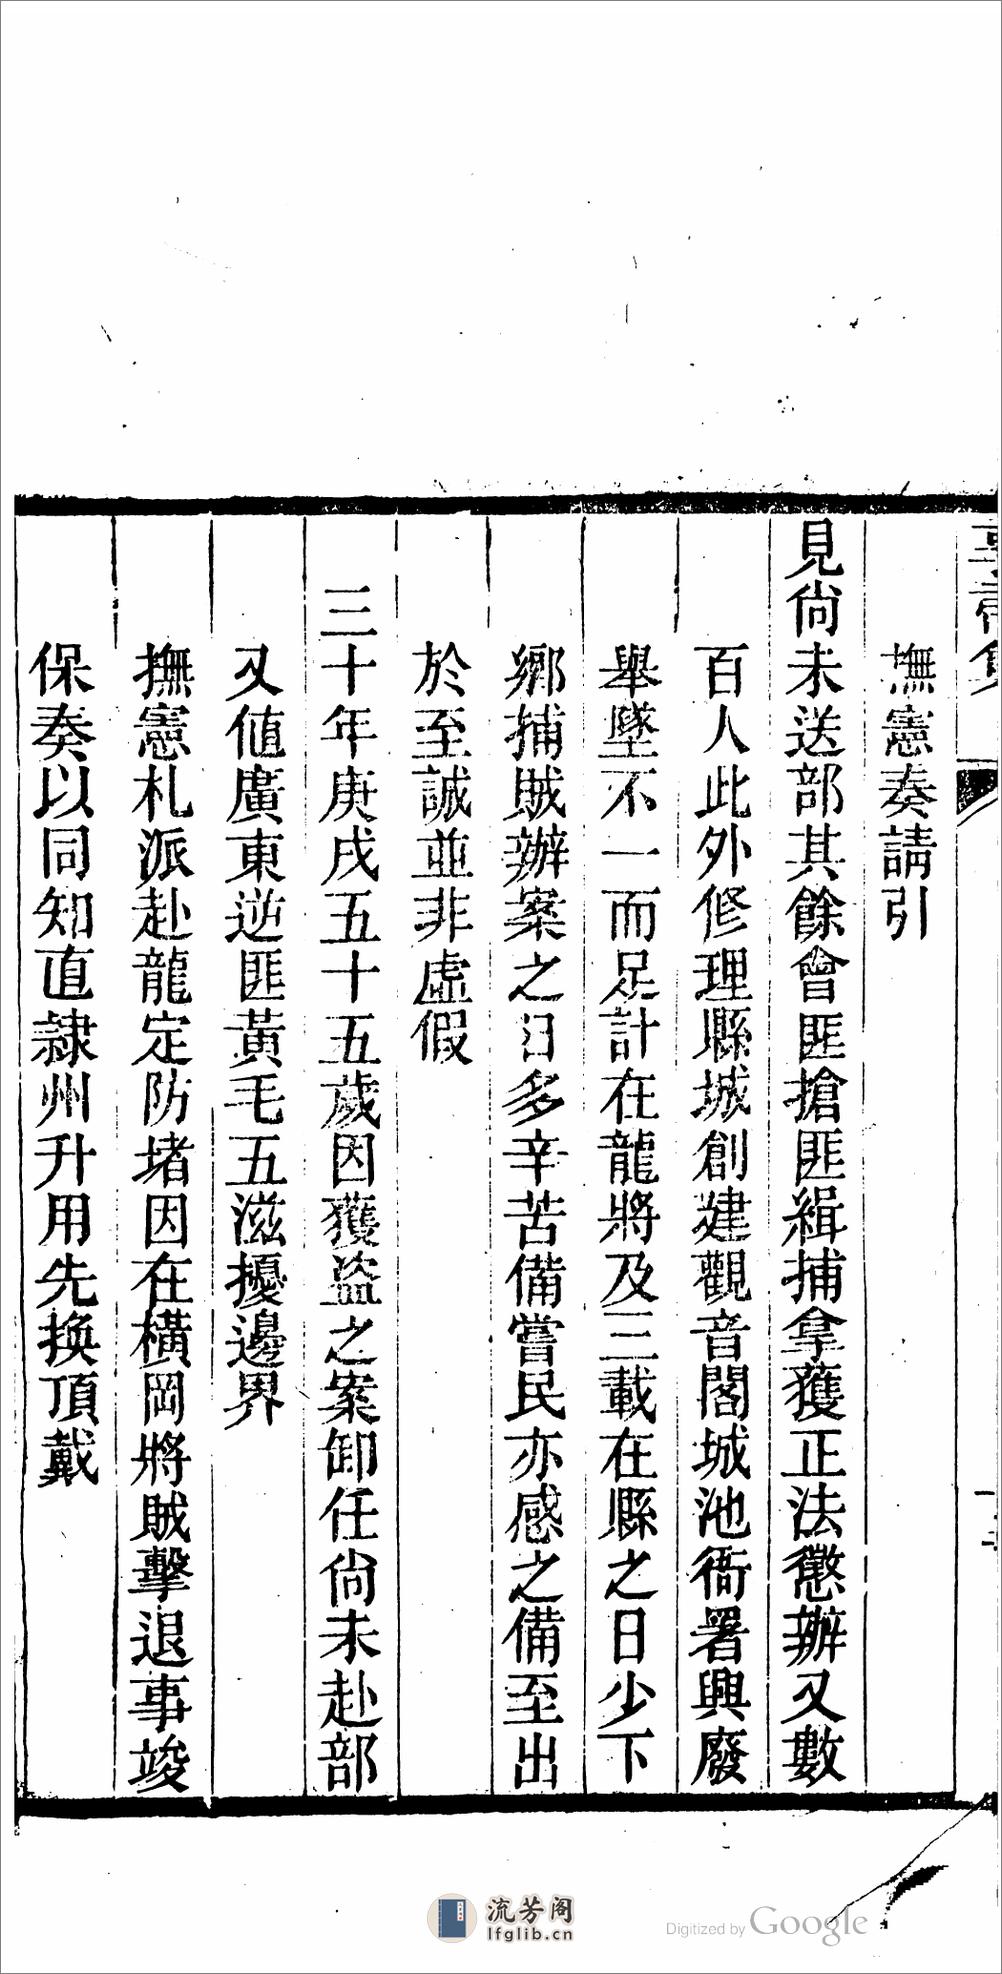 撫憲奏請引
見尙未送部其餘會匪搶匪緝捕拿獲正法懲辦又數
百人此外修理縣城創建觀音閣城池衙署興廢
舉墜不一而足計在龍將及三載在縣之日少下
鄉捕賊辦案之日多辛苦備嘗民亦感之備至出
於至誠並非虛假
三十年庚戌五十五歲因獲盜之案卸任尙未赴部
又値廣東逆匪黃毛五滋擾邊界
撫憲札派赴龍定防堵因在橫岡將賊擊退事竣
保奏以同知直隸州升用先換頂戴
流芳阁
lfglib.cn
Digitized by Google